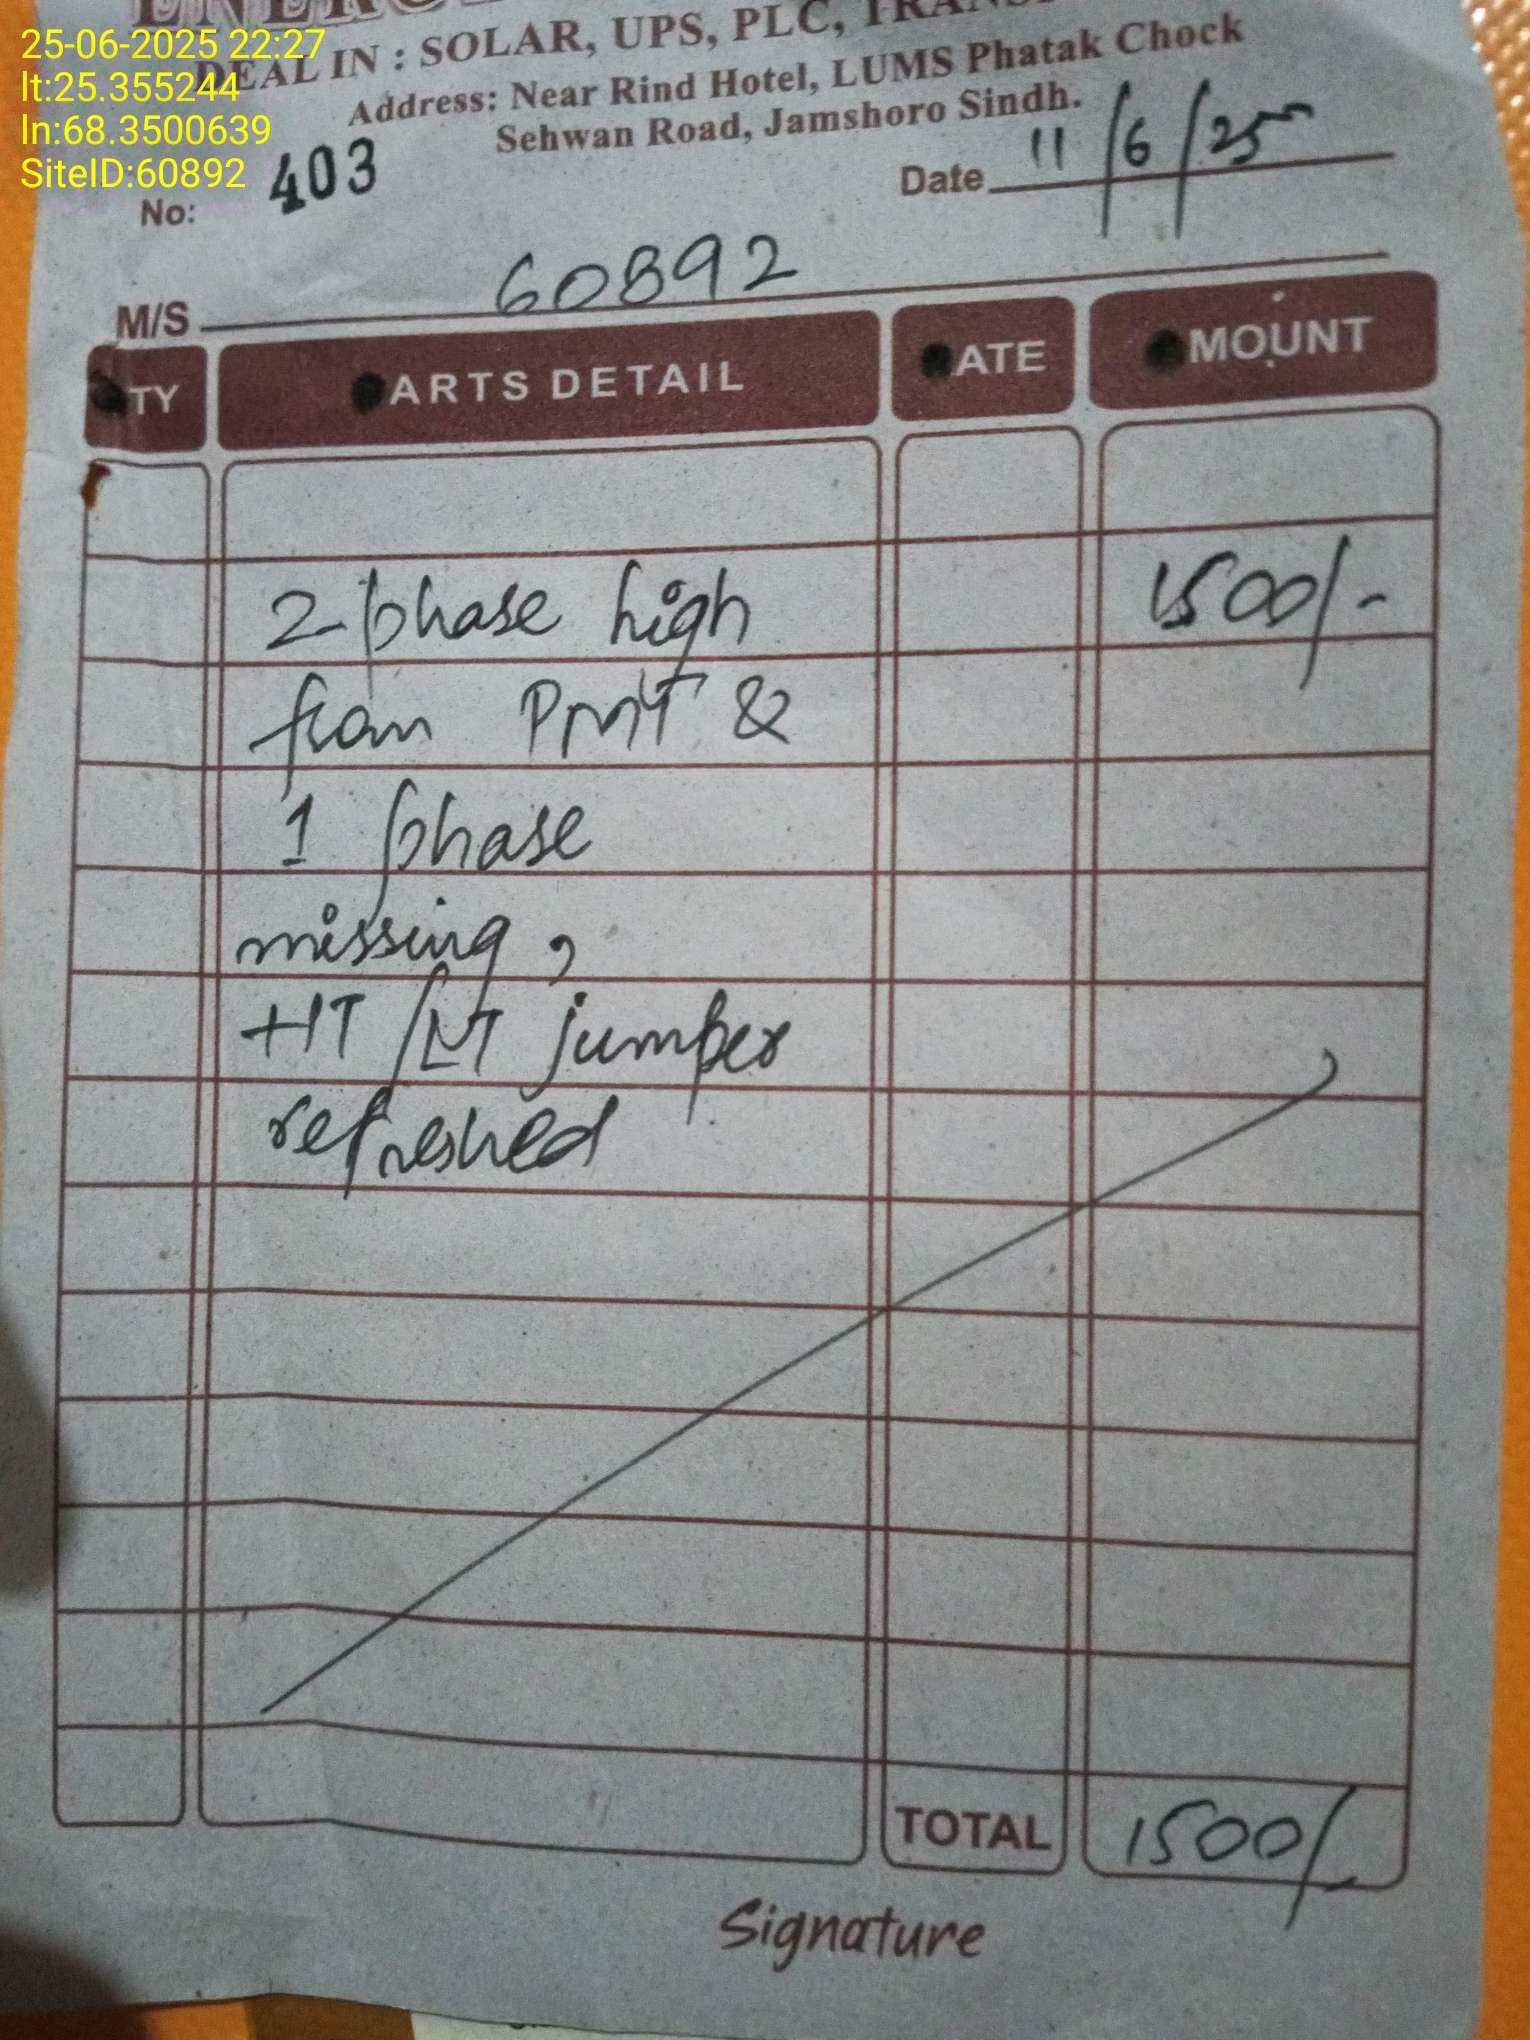 25-06-2025 22:27
lt:25.355244
ln:68.3500639
SiteID:60892
DEAL IN : SOLAR, UPS, PLC,
Address: Near Rind Hotel, LUMS Phatak Chock
Sehwan Road, Jamshoro Sindh.
No: 403
Date 11/6/25
M/S 60892
TY ARTS DETAIL ATE MOUNT
2 phase high 1500/-
from PMT &
1 phase
missing,
HT/LT jumper
refreshed
TOTAL 1500/-
Signature